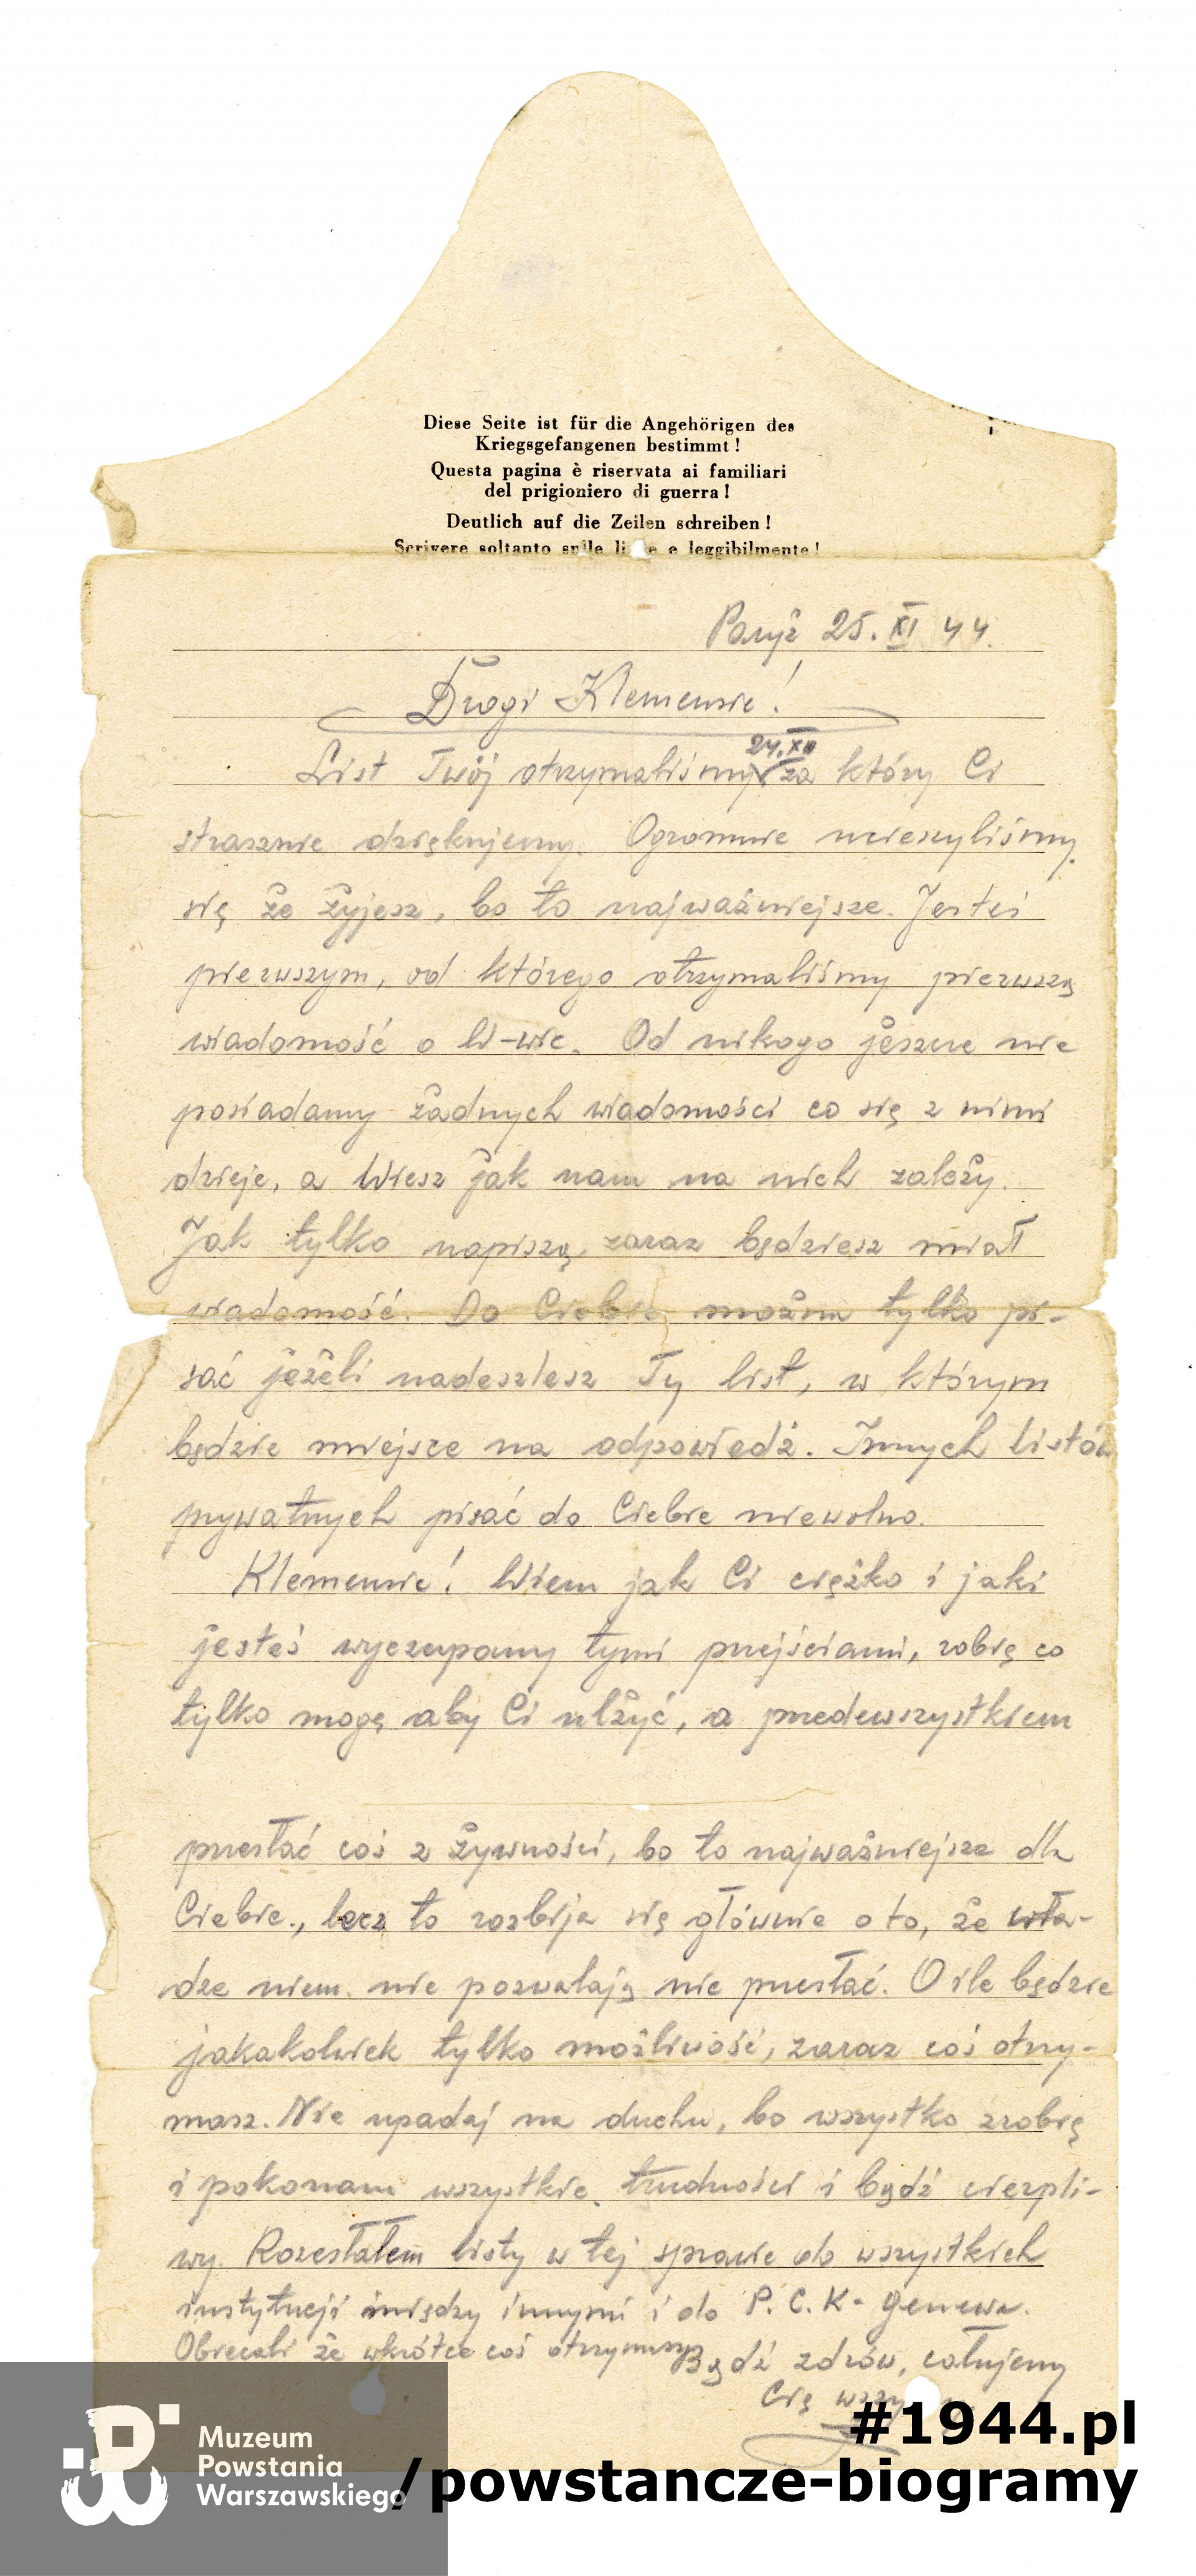 Diese Seite ist für die Angehörigen des
Kriegsgefangenen bestimmt!
Questa pagina è riservata ai familiari
del prigioniero di guerra!
Deutlich auf die Zeilen schreiben!
Scrivere soltanto sulle li e e leggibilmente!
25. XI 44.
Drogi Klemensie!
24.XI
List Twój otrzymaliśmy za który Ci
strasznie dziękujemy. Ogromnie ucieszyliśmy
się że żyjesz, bo to najważniejsze. Jesteś
pierwszym, od którego otrzymaliśmy pierwszą
wiadomość o W-wie. Od nikogo jeszcze nie
posiadamy żadnych wiadomości co się z nimi
dzieje, a Wiesz jak nam na nich zależy.
Jak tylko napiszą, zaraz będziesz miał
wiadomość. Do Ciebie można tylko pi-
sać jeżeli nadeszlesz Ty list, w którym
będzie miejsce na odpowiedź. Innych listów
prywatnych pisać do Ciebie niewolno.
Klemensie! Wiem jak Ci ciężko i jaki
jesteś wyczerpany tymi przejściami, robię co
tylko mogę aby Ci ulżyć, a przedewszystkiem
przesłać coś z żywności, bo to najważniejsze dla
Ciebie., lecz to rozbija się głównie o to, że wła-
dze niem. nie pozwalają nic przesłać. O ile będzie
jakakolwiek tylko możliwość, zaraz coś otrzy-
masz. Nie upadaj na duchu, bo wszystko zrobię
i pokonam wszystkie trudności i bądź cierpli-
wy. Rozesłałem listy w tej sprawie do wszystkich
instytucji między innymi i do P.C.K. Genewa.
Obiecali że wkrótce coś otrzymasz
Bądź zdrów, całujemy
Cię
Muzeum
Powstania
Warszawskiego
#1944.pl
/powstancze-biogramy